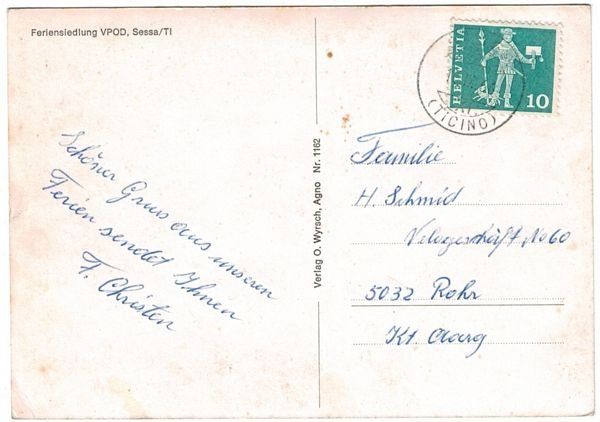 Feriensiedlung VPOD, Sessa/TI
Schöner Gruss aus unseren
Ferien sendet Ihnen
F. Christen
Verlag O. Wyrsch, Agno Nr. 1162
HELVETIA
10
(TICINO)
Familie
H. Schmid
Velogeschäft No 60
5032 Rohr
Kt Aarg